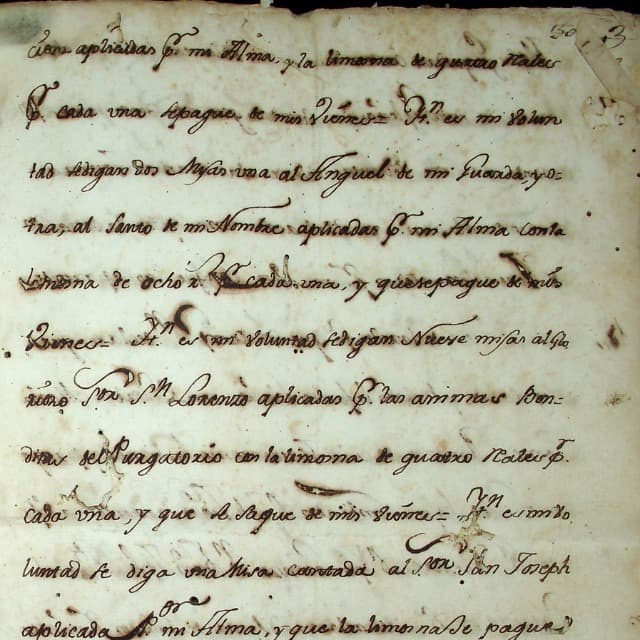 30 3
cion aplicadas Pr. mi Alma, y la limosna de quatro Reales
Pr. cada vna sepague de mis Vienes= Ytn es mi volun
tad sedigan dos Misas vna al Anguel de mi Guarda, y o-
tra, al Santo de mi Nombre aplicadas Pr. mi Alma conla
Limosna de ocho r. Pr. cada vna, y quesepague de mis
Vienes= Ytn es mi voluntad sedigan Nueve misas al Glo
rioso Sor Sn Lorenzo aplicadas Pr. las animas Ben-
ditas del Purgatorio con la limosna de quatro Reales Pr.
Cada vna, y que se saque de mis vienes= Ytn es mi vo
luntad se diga vna Misa cantada al Sor San Joseph
aplicada Por mi Alma, y que la limosna se pague